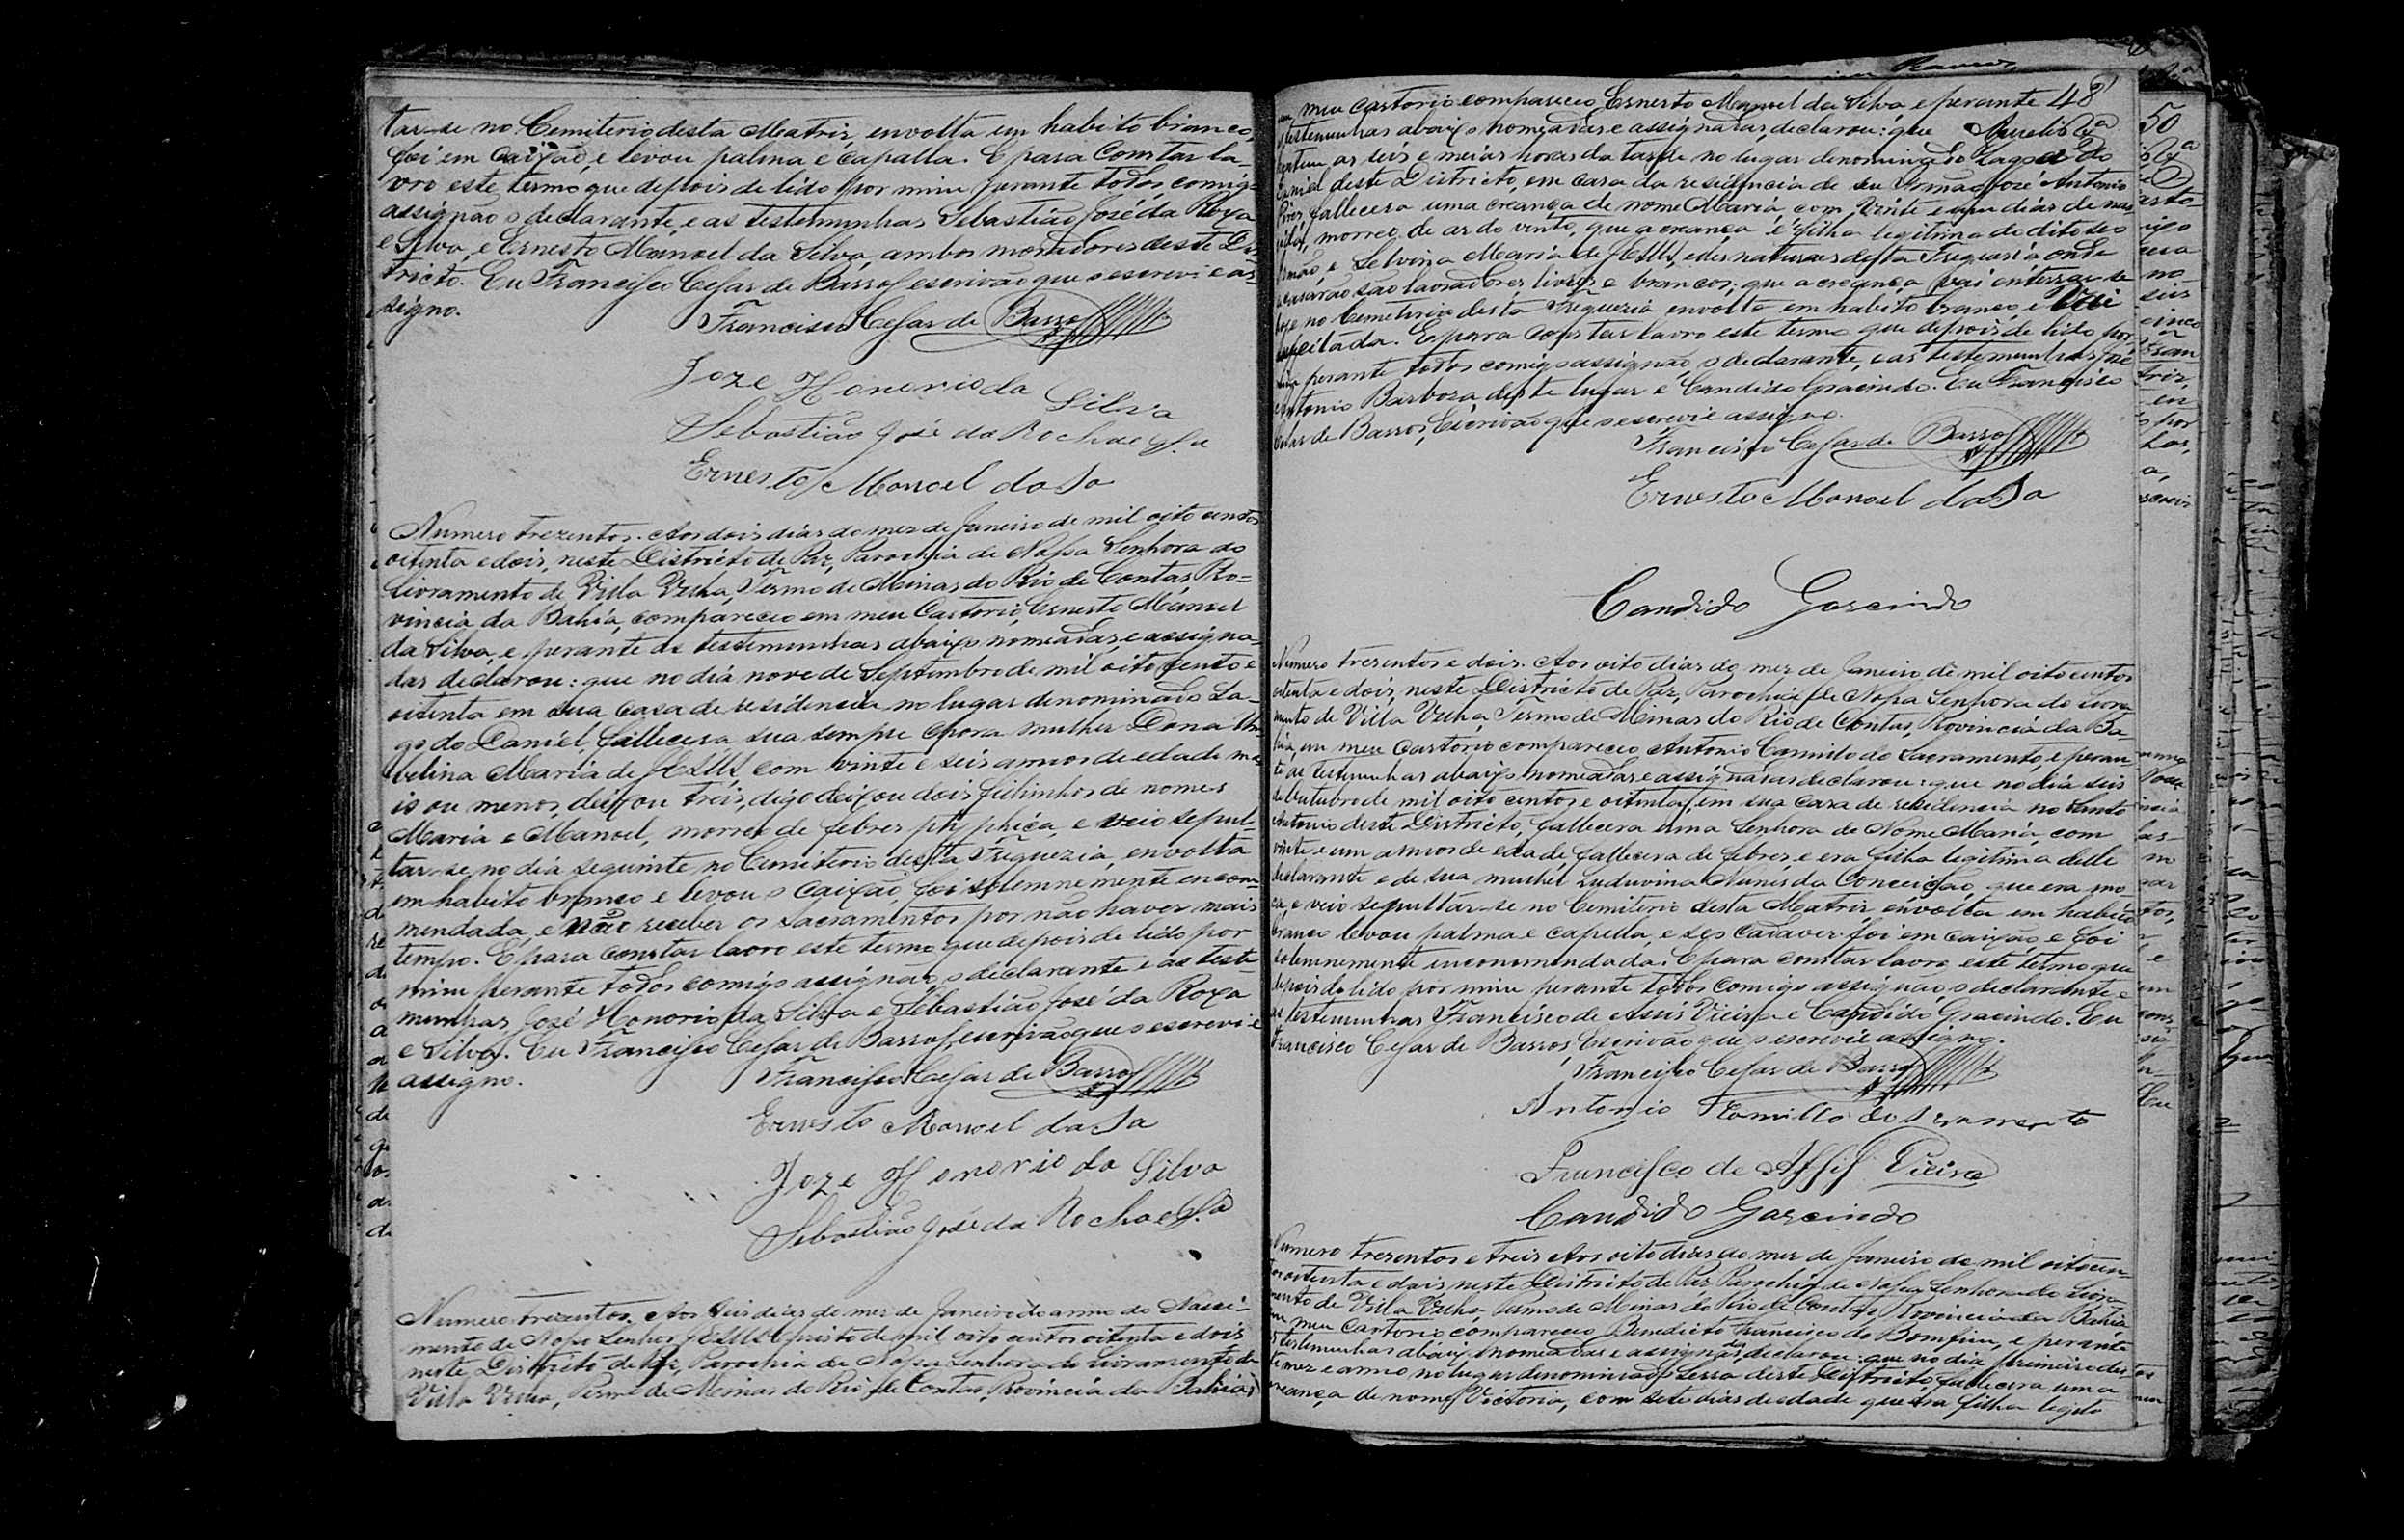 tar-se no Cemiterio desta Matriz, envolta em habito branco,
foi em caixão, e levou palma e capella. E para constar la-
vro este termo que depois de lido por mim perante todos, comigo
assignão o declarante, e as testemunhas Sebastião José da Roxa
e Silva, e Ernesto Manoel da Silva, ambos moradores deste Dis-
tricto. Eu Francisco Cesar de Barros escrivão que o escrevi e as-
signo.
Francisco Cesar de Barros
Joze Honorio da Silva
Sebastião José da Rocha e Sa
Ernesto Manoel da Sa
Numero trezentos. Aos dois dias do mez de Janeiro de mil oito centos
oitenta e dois, neste Districto de Paz, Parochia de Nossa Senhora do
Livramento de Villa Velha, Termo de Minas do Rio de Contas Pro=
vincia da Bahia, compareceo em meu Cartorio, Ernesto Manoel
da Silva, e perante as testemunhas abaixo nomeadas, e assigna-
das declarou: que no dia nove de Septembro de mil oito cento e
oitenta em sua casa de residencia no lugar denominado La-
go do Daniel, fallecera sua sempre chora mulher Dona
belina Maria de JESUS, com vinte e seis annos de edade ma-
is ou menos, deixou treis, digo deixou dois filhinhos de nomes
Maria e Manoel, morreo de febres e veio sepul-
tar-se no dia seguinte no Cemiterio desta Freguezia, envolta
em habito branco e levou o caixão, foi solemnemente encom-
mendada, e não receber os sacramentos por não haver mais
tempo. E para constar lavro este termo que depois de lido por
mim perante todos comigo assignão, o declarante e as teste-
munhas José Honorio da Silva e Sebastião José da Roxa
e Silva. Eu Francisco Cesar de Barros, escrivão que o escrevi e
assigno.
Francisco Cesar de Barros
Ernesto Manoel da Sa
Joze Honorio da Silva
Sebastião José da Rocha e Sa
Numero trezentos. Aos seis dias do mez de Janeiro do anno do Nasci-
mento de Nosso Senhor JESUS Christo de mil oito centos oitenta e dois
neste Districto de Paz, Parochia de Nossa Senhora do Livramento de
Villa Velha, Termo de Minas do Rio de Contas, Provincia da Bahia,
em meu Cartorio compareceo Ernesto Manoel da Silva e perante 48
testemunhas abaixo nomeadas e assignadas, declarou: que
as seis e meias horas da tarde no lugar denominado Lago do
Daniel deste Districto, em casa da residencia de seu Irmão José Antonio
fallecera uma creança de nome Maria, com vinte e um dias de nas-
morreo de ar do vento, que a creança é filha legitima do dito seo
Irmão, e Selvina Maria de JESUS, elles naturaes desta Freguesia onde
se casarão são lavradores livres e brancos; que a creança vai enterrar-se
hoje no Cemiterio desta Freguezia envolta em habito branco e
E para constar lavro este termo que depois de lido por
mim perante todos comigo assignão, o declarante, e as testemunhas José
Antonio Barboza deste lugar e Candido Gracindo. Eu Francisco
Cesar de Barros, Escrivão que o escrevi e assigno.
Francisco Cesar de Barros
Ernesto Manoel da Sa
Candido Garcindo
Numero tresentos e dois. Aos oito dias do mez de Janeiro de mil oito centos
oitenta e dois, neste Districto de Paz, Parochia de Nossa Senhora do Livra
mento de Villa Velha, Termo de Minas do Rio de Contas, Provincia da Ba-
hia, em meu Cartorio compareceo Antonio Camilo do Sacramento, e peran-
te as testemunhas abaixo nomeadas e assignadas declarou: que no dia seis
de Outubro de mil oito centos e oitenta, em sua casa de residencia no Santo
Antonio deste Districto, fallecera uma Senhora de Nome Maria, com
vinte e um annos de edade fallecera de febres e era filha legitima delle
declarante e de sua mulhel Luduvina Nunes da Conceição, que era mo
ça, e veio sepultar-se no Cemiterio desta Matriz envolta em habito
branco levou palma e capella, e seo cadaver foi em caixão e foi
solemnemente encommendada. E para constar lavro este termo que
depois de lido por mim perante todos comigo assignão, o declarante e
as testemunhas Francisco de Assis Vieira e Candido Gracindo. Eu
Francisco Cesar de Barros, Escrivão que o escrevi e assigno.
Francisco Cesar de Barros
Antonio Camillo do Sacramento
Francisco de Assis Vieira
Candido Garcindo
Numero tresentos e treis Aos oito dias do mez de Janeiro de mil oitocen-
tos oitenta e dois, neste Districto de Paz, Parochia de Nossa Senhora do Livra
mento de Villa Velha Termo de Minas do Rio de Contas, Provincia da Bahia
em meu Cartorio compareceo Benedicto Francisco do Bomfim, e perante
as testemunhas abaixo nomeadas e assignadas declarou: que no dia primeiro des
te mez e anno no lugar denominado Serra deste Districto, fallecera uma
creança de nome Victoria, com sete dias de edade que era filha legiti